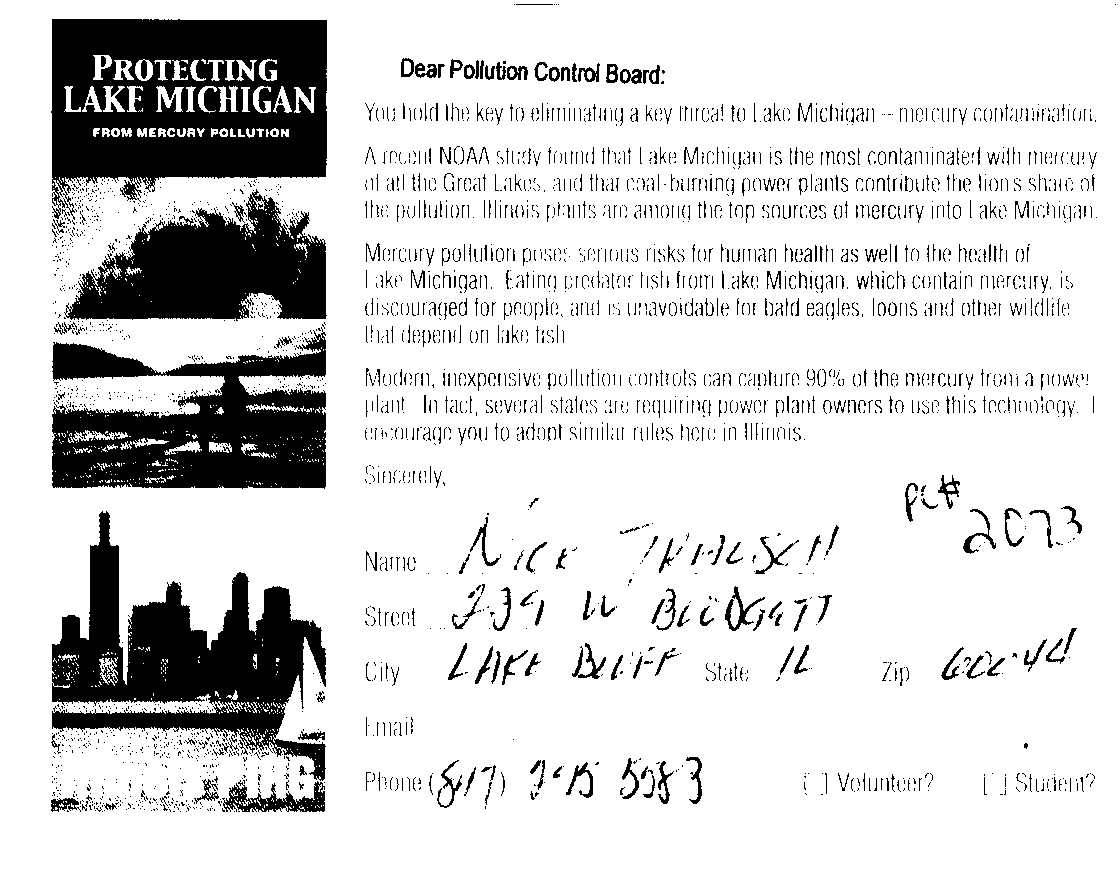 PROTECTING
LAKE MICHIGAN
FROM MERCURY POLLUTION
Dear Pollution Control Board:
You hold the key to eliminating a key threat to Lake Michigan -- mercury contamination.
A recent NOAA study found that Lake Michigan is the most contaminated with mercury
of all the Great Lakes, and that coal-burning power plants contribute the lion's share of
the pollution. Illinois plants are among the top sources of mercury into Lake Michigan.
Mercury pollution poses serious risks for human health as well to the health of
Lake Michigan. Eating predator fish from Lake Michigan, which contain mercury, is
discouraged for people, and is unavoidable for bald eagles, loons and other wildlife
that depend on lake fish.
Modern, inexpensive pollution controls can capture 90% of the mercury from a power
plant. In fact, several states are requiring power plant owners to use this technology. I
encourage you to adopt similar rules here in Illinois.
Sincerely,
PC#
2073
Name NICK
Street 239 W BLODGETT
City LAKE BLUFF State IL Zip 60044
Email
Phone (847) 5983
[ ] Volunteer? [ ] Student?
ILLINOIS PIRG